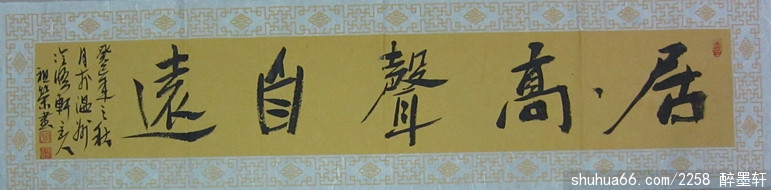 居高聲自遠
癸未之秋
月於温州
冷漚軒主人
祖榮書
shuhua66.com/2258 醉墨轩